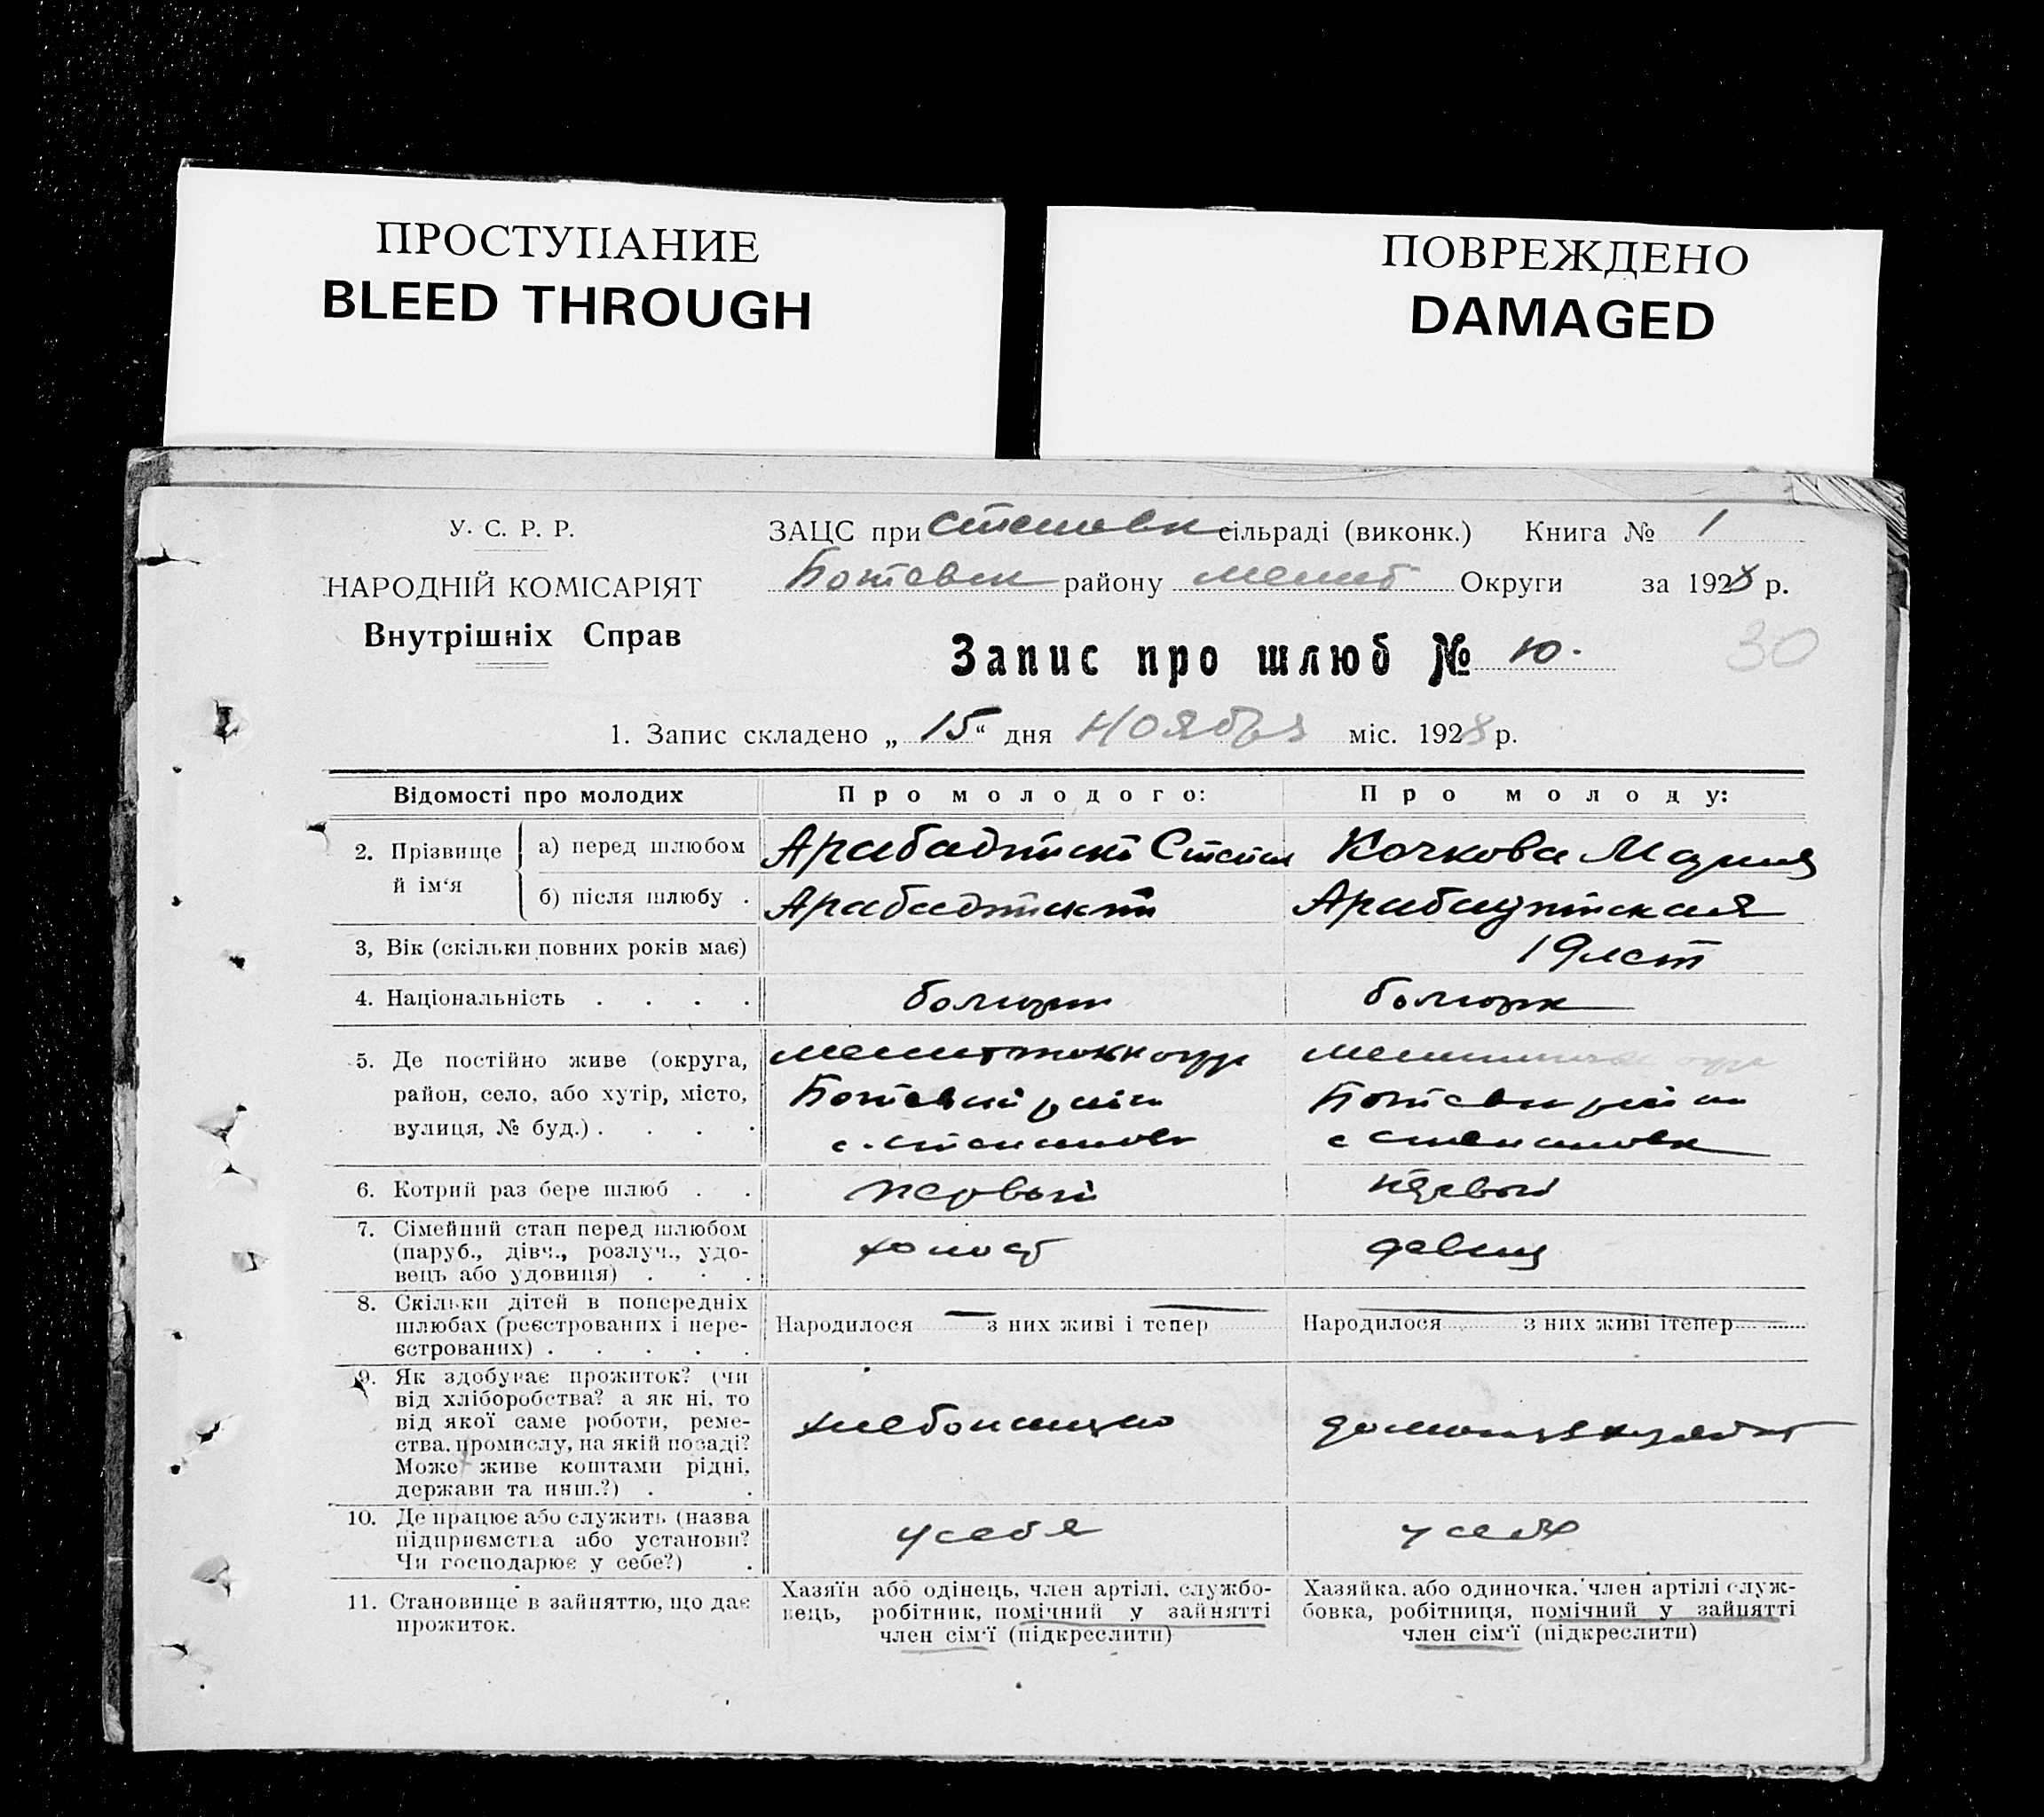 ПРОСТУПАНИЕ
BLEED THROUGH
ПОВРЕЖДЕНО
DAMAGED
У. С. Р. Р.
НАРОДНІЙ КОМІСАРІЯТ
Внутрішніх Справ
ЗАЦС при сільраді (виконк.) Книга № 1
Ботевск району Мелит Округи за 1928 р.
Запис про шлюб № 10.
30
1. Запис складено „15“ дня Ноября міс. 1928 р.
Відомості про молодих
Про молодого:
Про молоду:
2. Прізвище й ім‘я
а) перед шлюбом
Арабаджийск Степан
Кочкова Мария
б) після шлюбу .
Арабаджиский
Арабаджиская
3, Вік (скільки повних років має)
19 лет
4. Національність . . . .
болгарин
болгарк
5. Де постійно живе (округа,
район, село, або хутір, місто,
вулиця, № буд.) . . . .
Ботевский район
Ботевск район
6. Котрий раз бере шлюб . .
первый
первый
7. Сімейний стан перед шлюбом
(паруб., дівч., розлуч., удо-
вець або удовиця) . . .
холост
девица
8. Скільки дітей в попередніх
шлюбах (реєстрованих і нере-
єстрованих) . . . . .
Народилося — з них живі і тепер —
Народилося з них живі і тепер
9. Як здобуває прожиток? (чи
від хліборобства? а як ні, то
від якої саме роботи, реме-
ства, промислу, на якій посаді?
Може живе коштами рідні,
держави та инш.?) . .
хлебопашец
10. Де працює або служить (назва
підприємства або установи?
Чи господарює у себе?) .
у себя
у себя
11. Становище в зайняттю, що дає
прожиток.
Хазяїн або одінець, член артілі, службо-
вець, робітник, помічний у зайнятті
член сім‘ї (підкреслити)
Хазяйка, або одиночка, член артілі служ-
бовка, робітниця, помічний у зайнятті
член сім‘ї (підкреслити)